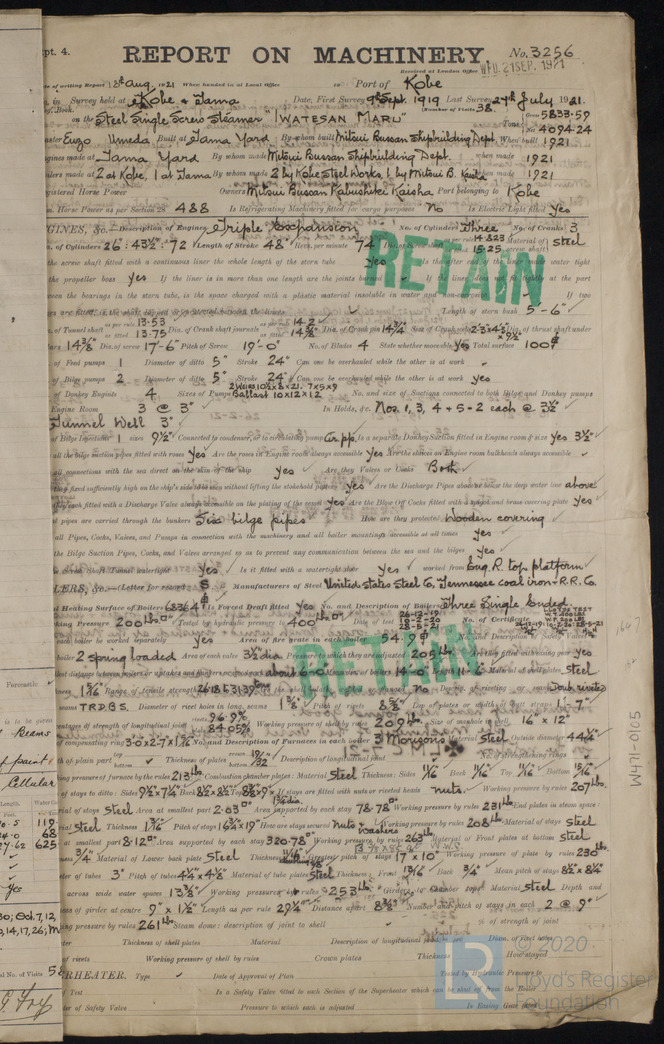 pt. 4.
REPORT ON MACHINERY. No. 3256
Received at London Office WED. 21 SEP. 1921
of writing Report 18th Aug. 1921 When handed in at Local Office Port of Kobe
in Survey held at Kobe & Tama Date, First Survey 9th Sept. 1919 Last Survey 27th July 1921
Book. (Number of Visits 38
on the Steel Single Screw Steamer "IWATESAN MARU" Tons Gross 5833.59 Net 4094.24
Umeda Built at Tama Yard By whom built Mitsui Bussan Shipbuilding Dept. When built 1921
gines made at Tama Yard By whom made Mitsui Bussan Shipbuilding Dept. when made 1921
lers made at 2 at Kobe, 1 at Tama By whom made 2 by Kobe Steel Works, 1 by Mitsui B. Kaisha when made 1921
gistered Horse Power Owners Mitsui Bussan Kabushiki Kaisha Port belonging to Kobe
Horse Power as per Section 28 488 Is Refrigerating Machinery fitted for cargo purposes No Is Electric Light fitted Yes
GINES, &c.— Description of Engines Triple Expansion No. of Cylinders Three No. of Cranks 3
of Cylinders 26 : 43½" : 72 Length of Stroke 48" Revs. per minute 74 14.823 15.25 Material of steel
the screw shaft fitted with a continuous liner the whole length of the stern tube yes
the propeller boss yes If the liner is in more than one length are the joints
een the bearings in the stern tube, is the space charged with a plastic material insoluble in water and If two
Length of stern bush 5'-6"
of Tunnel shaft as per rule 13.53 as fitted 13.75 Dia. of Crank shaft journals 14.2 14⅞" Dia. of Crank pin 14¾ Size of Crank webs Dia. of thrust shaft under
ars 14⅞" Dia. of screw 17'-6" Pitch of Screw 19'-0" No. of Blades 4 State whether moveable Yes Total surface 100
of Feed pumps 1 Diameter of ditto 5" Stroke 24" Can one be overhauled while the other is at work
of Bilge pumps 2 Diameter of ditto 5" Stroke 24" Can one be overhauled while the other is at work yes
of Donkey Engines 4 Sizes of Pumps Ballast 10x12x12 No. and size of Suctions connected to both Bilge and Donkey pumps
Engine Room 3 @ 3" In Holds, &c. Nos. 1, 3, 4 + 5 - 2 each @ 3½"
Tunnel Well 3"
of Bilge Injections 1 sizes 9½" Connected to condenser, or to circulating pump Cir pp. Is a separate Donkey Suction fitted in Engine room & size Yes 3½"
all the bilge suction pipes fitted with roses yes Are the roses in Engine room always accessible yes Are the sluices on Engine room bulkheads always accessible
all connections with the sea direct on the skin of the ship yes Are they Valves or Cocks Both
they fixed sufficiently high on the ship's side to be seen without lifting the stokehold plates yes Are the Discharge Pipes above or below the deep water line above
they each fitted with a Discharge Valve always accessible on the plating of the vessel yes Are the Blow Off Cocks fitted with a spigot and brass covering plate yes
at pipes are carried through the bunkers Six bilge pipes How are they protected Wooden covering
all Pipes, Cocks, Valves, and Pumps in connection with the machinery and all boiler mountings accessible at all times yes
the Bilge Suction Pipes, Cocks, and Valves arranged so as to prevent any communication between the sea and the bilges yes
Screw Shaft Tunnel watertight yes Is it fitted with a watertight door yes worked from Eng. R. top platform
LERS, &c.— (Letter for record S) Manufacturers of Steel United States Steel Co., Tennessee coal iron - R.R. Co.
al Heating Surface of Boilers 6236 Is Forced Draft fitted Yes No. and Description of Boilers Three Single Ended
king Pressure 200 lbs Tested by hydraulic pressure to 400 lbs Date of test No. of Certificate
boiler be worked separately yes Area of fire grate in each 54.9 and Description of Safety Valves
boiler 2 spring loaded Area of each valve 3½ dia Pressure to which they are adjusted 205 lbs Are they fitted with easing gear yes
about 6-0 of boilers 14-0 11-6 Material of shell plates steel
Range of tensile strength No Descrip. of riveting Doub. riveted
seams T.R.D.B.S. Diameter of rivet holes in long. seams 1⅜" Pitch of rivets 8⅝" Lap of plates or width of butt straps 1'-7"
entages of strength of longitudinal joint rivets 96.9% plate 84.05% Working pressure of shell by rules 209 lbs. Size of manhole in shell 16" x 12"
compensating ring No. and Description of Furnaces in each boiler 3 Morisons Material Steel Outside diameter 44⅜"
th of plain part top bottom Thickness of plates 19/32 Description of longitudinal joint No. of strengthening rings
king pressure of furnace by the rules 213 lbs. Combustion chamber plates: Material Steel Thickness: Sides 11/16 Back 11/16" Top 11/16 Bottom 15/16
If stays are fitted with nuts or riveted heads nuts Working pressure by rules 207 lbs.
al of stays Steel Area at smallest part 2.03 Area supported by each stay 78.78 Working pressure by rules 231 lbs End plates in steam space:
rial Steel Thickness 1 3/16" Pitch of stays 16¾ x 19" How are stays secured Nuts & washers Working pressure by rules 208 lbs. Material of stays Steel
at smallest part 8.12 Area supported by each stay 320.78 Working pressure by rules 263 lbs. Material of Front plates at bottom Steel
ness ¾" Material of Lower back plate Steel Thickness Greatest pitch of stays 17 x 10" Working pressure of plate by rules 230 lbs.
eter of tubes 3" Pitch of tubes 4¼" x 4⅛" Material of tube plates Steel Thickness: Front 13/16" Back ¾" Mean pitch of stays 8½" x 8¼"
across wide water spaces 13⅜" Working pressures by rules 253 lbs. Girders to Chamber tops: Material Steel Depth and
ess of girder at centre 9" x 1½" Length as per rule 29¼" Distance apart 8¾" Number and pitch of stays in each 2 @ 9"
ing pressure by rules 261 lbs. Steam dome: description of joint to shell % of strength of joint
Thickness of shell plates Material Description of longitudinal joint Diam. of rivet holes
of rivets Working pressure of shell by rules Crown plates Thickness How stayed
RHEATER. Type Date of Approval of Plan Tested by Hydraulic Pressure to
of Test Is a Safety Valve fitted to each Section of the Superheater which can be shut off from the Boiler
ter of Safety Valve Pressure to which each is adjusted Is Easing Gear
RETAIN
RETAIN
W471-0165
Forecastle
is to be given
Beams
Cellular
119
68
625
Yes
30; Oct. 7, 12,
9, 14, 17, 26; M
al No. of Visits
© 2020
LR
Lloyd's Register
Foundation